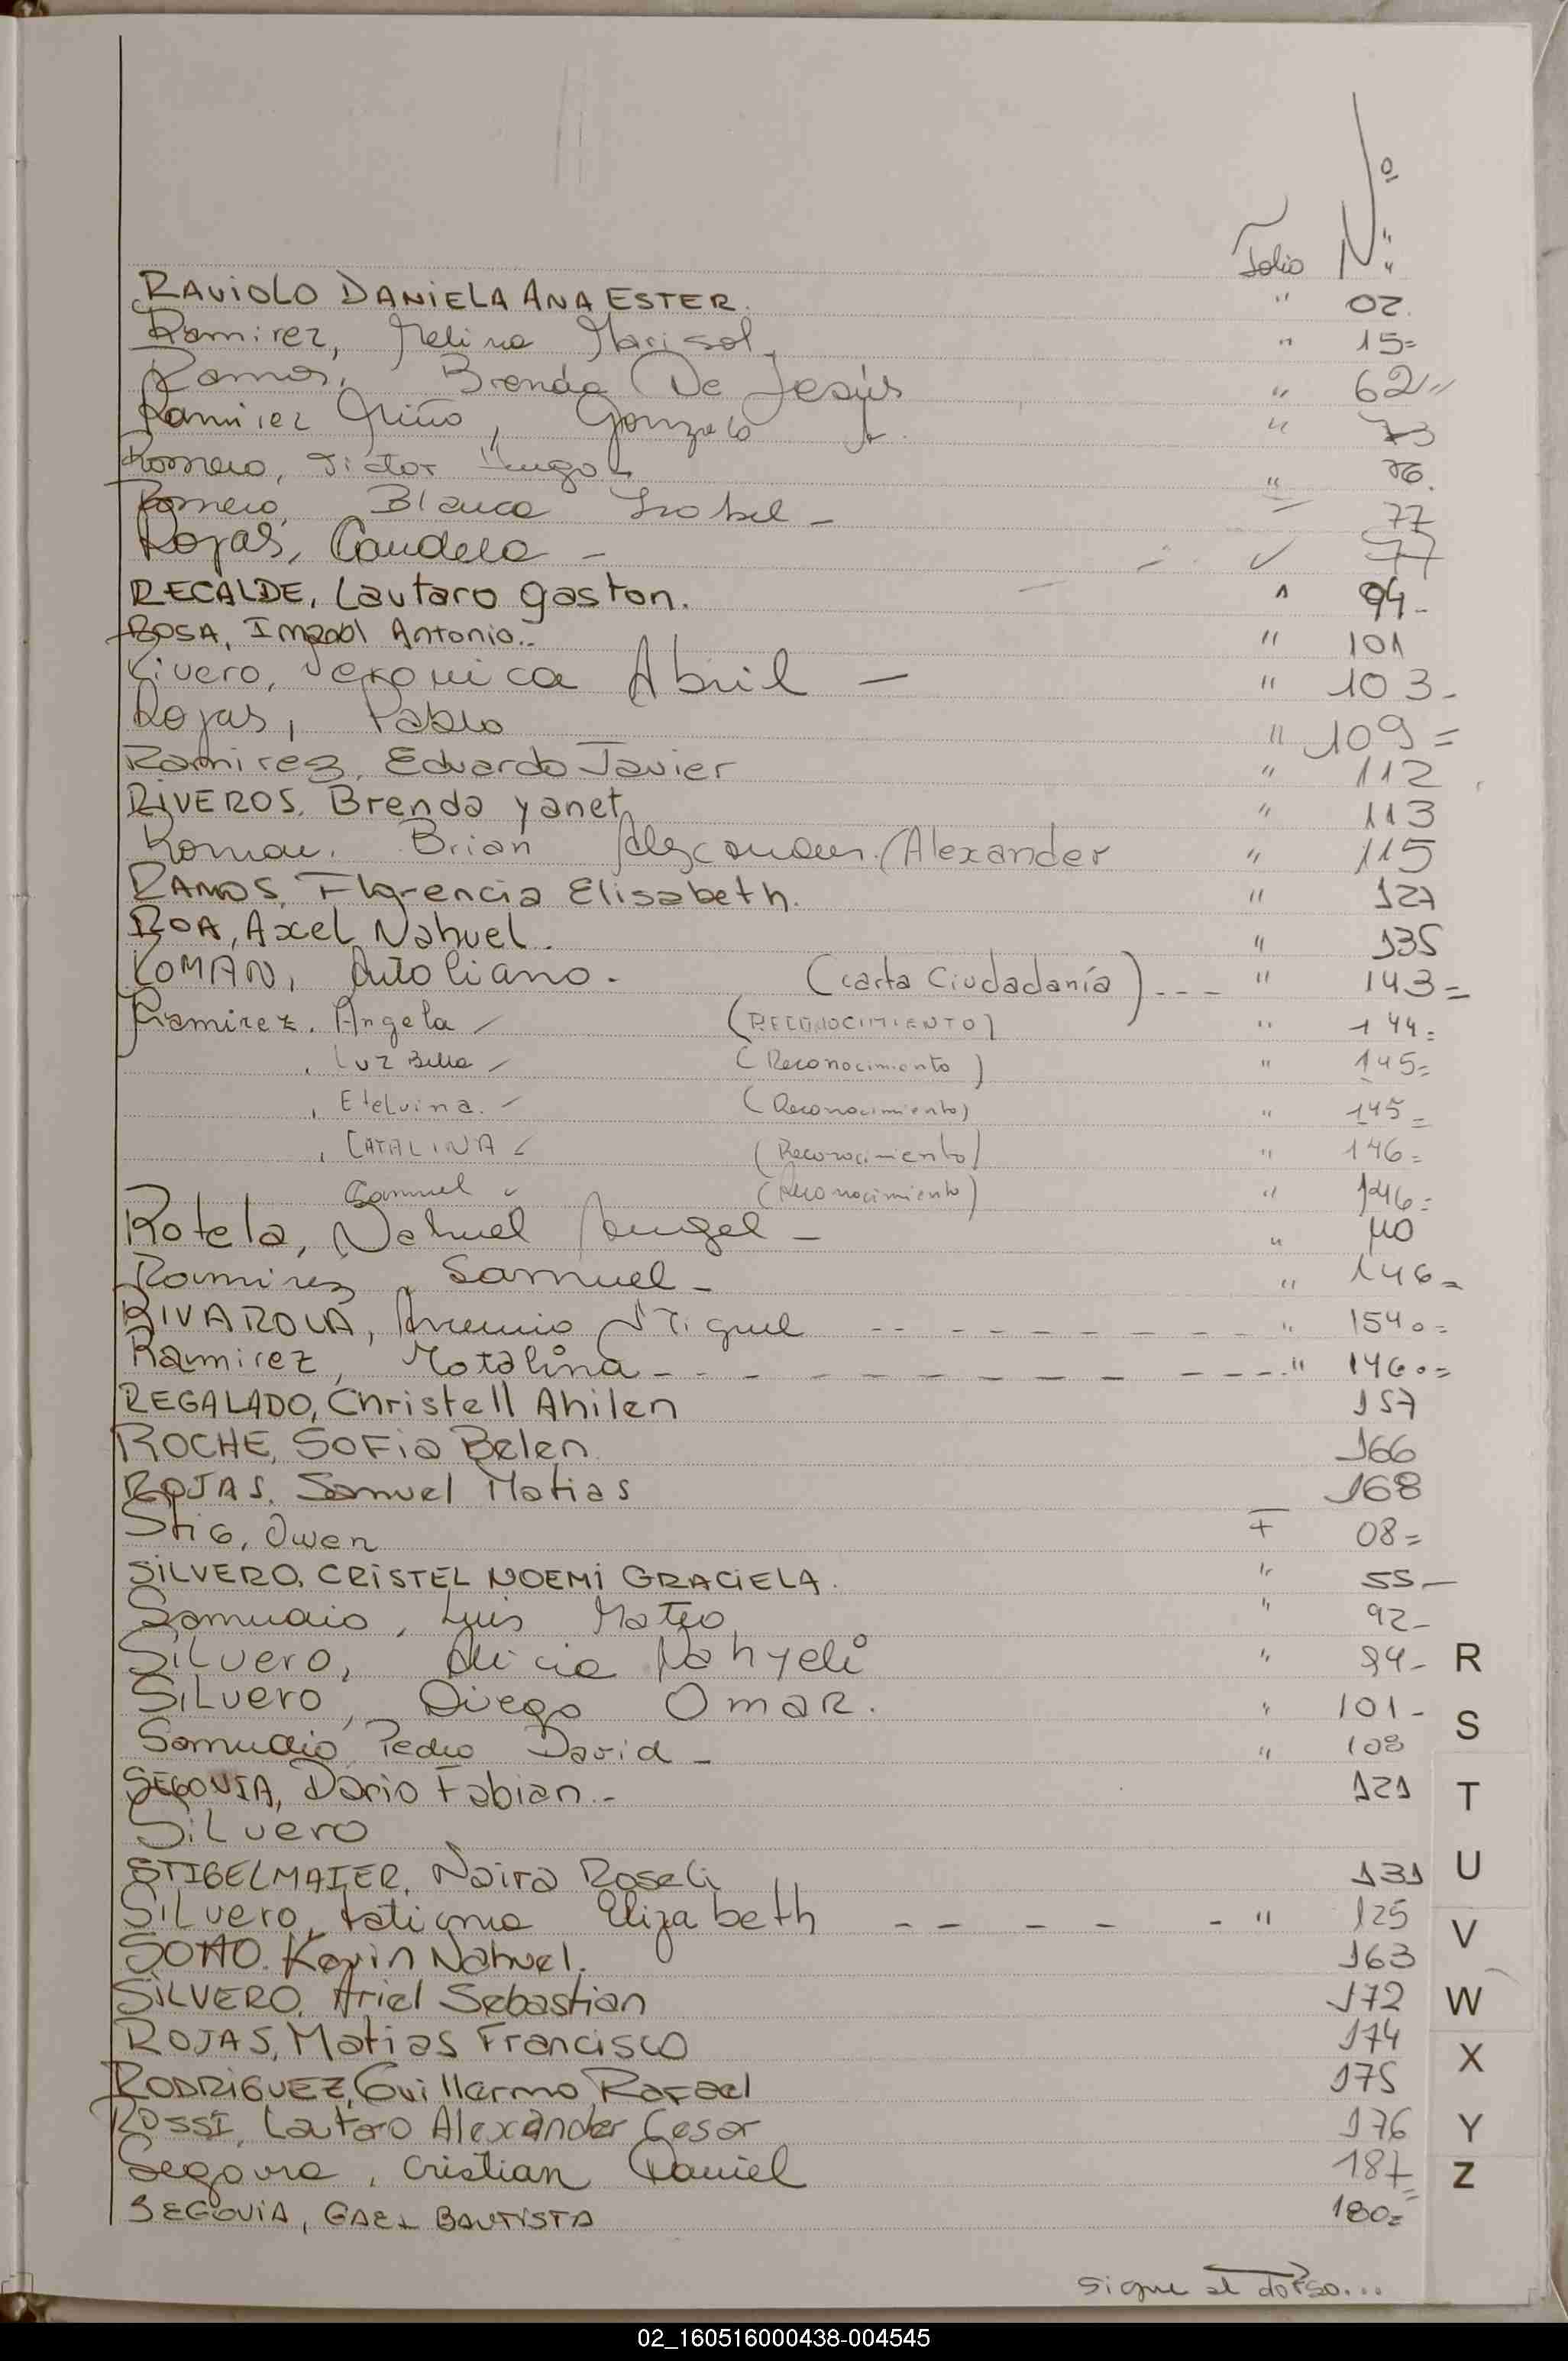 Folio Nº
RAVIOLO DANIELA ANA ESTER. " 02.
Ramirez, Melina Marisol. " 15=
Ramos, Brenda De Jesús " 62"
Ramirez Griño, Gonzalo " 73
Romero, Victor Hugo. " 76.
Romero, Blanca Isabel - " 77
Rojas, Candela - 77
RECALDE, Lautaro gaston. " 94-
ROSA, Antonio.. " 101
Rivero, Veronica Abril — " 103-
Rojas, Pablo " 109=
Ramirez, Eduardo Javier " 112
RIVEROS, Brenda yanet " 113
Roman, Brian Alexander " 115
RAMOS, Florencia Elisabeth. " 127
ROA, Axel Nahuel. " 135
ROMAN, Autoliano. (carta Ciudadanía) --- " 143=
Ramirez. Angela (RECONOCIMIENTO) " 144=
, Luz Bella (Reconocimiento) " 145=
, Etelvina. (Reconocimiento) " 145=
, CATALINA (Reconocimiento) " 146=
Samuel (Reconocimiento) " 146=
Rotela, Nahuel Angel - " 110
Ramirez, Samuel - " 146=
RIVAROLA, Miguel - - - - - - - - " 154.=
Ramirez, Matalina - - - - - - - - " 146.=
REGALADO, Christell Ahilen 157
ROCHE, SOFia Belen. 166
ROJAS, Samuel Matias 168
Stig, Owen F 08=
SILVERO, CRISTEL NOEMI GRACIELA. " 55-
Samudio, Luis Mateo " 92-
Silvero, Alicia Nahyeli " 94-
Silvero, Diego Omar. " 101-
Samudio, Pedro David - " 108
SEGOVIA, Dario Fabian.- 121
Silvero
STIGELMAIER, Naira Roseli 131
Silvero, tatiana Elizabeth - - - - - " 125
SOTTO. Kevin Nahuel. 163
SILVERO, Ariel Sebastian 172
ROJAS, Matias Francisco 174
RODRIGUEZ, Guillermo Rafael 175
ROSSI, Lautaro Alexander Cesar 176
Segovia, Cristian Daniel 187=
SEGOVIA, GAEL BAUTISTA 180=
sigue al dorso...
R
S
T
U
V
W
X
Y
Z
02_160516000438-004545